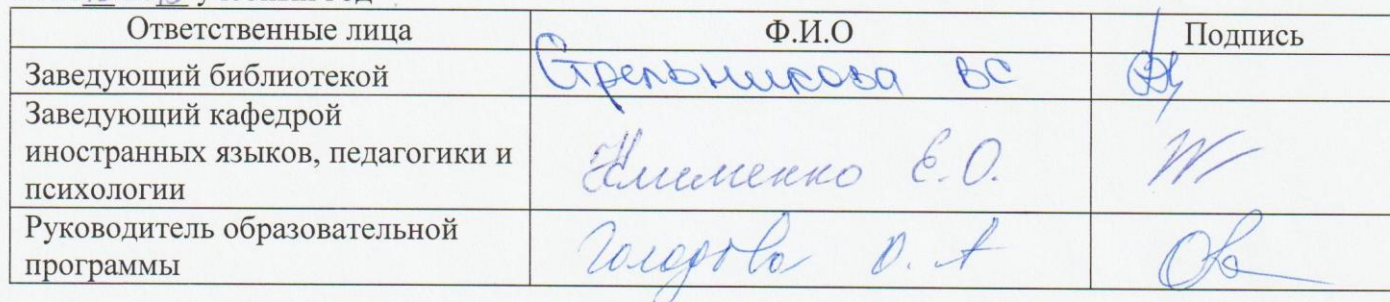 Ответственные лица Ф.И.О Подпись
Заведующий библиотекой Стрельникова ВС
Заведующий кафедрой
иностранных языков, педагогики и
психологии Клименко Е.О.
Руководитель образовательной
программы О. А